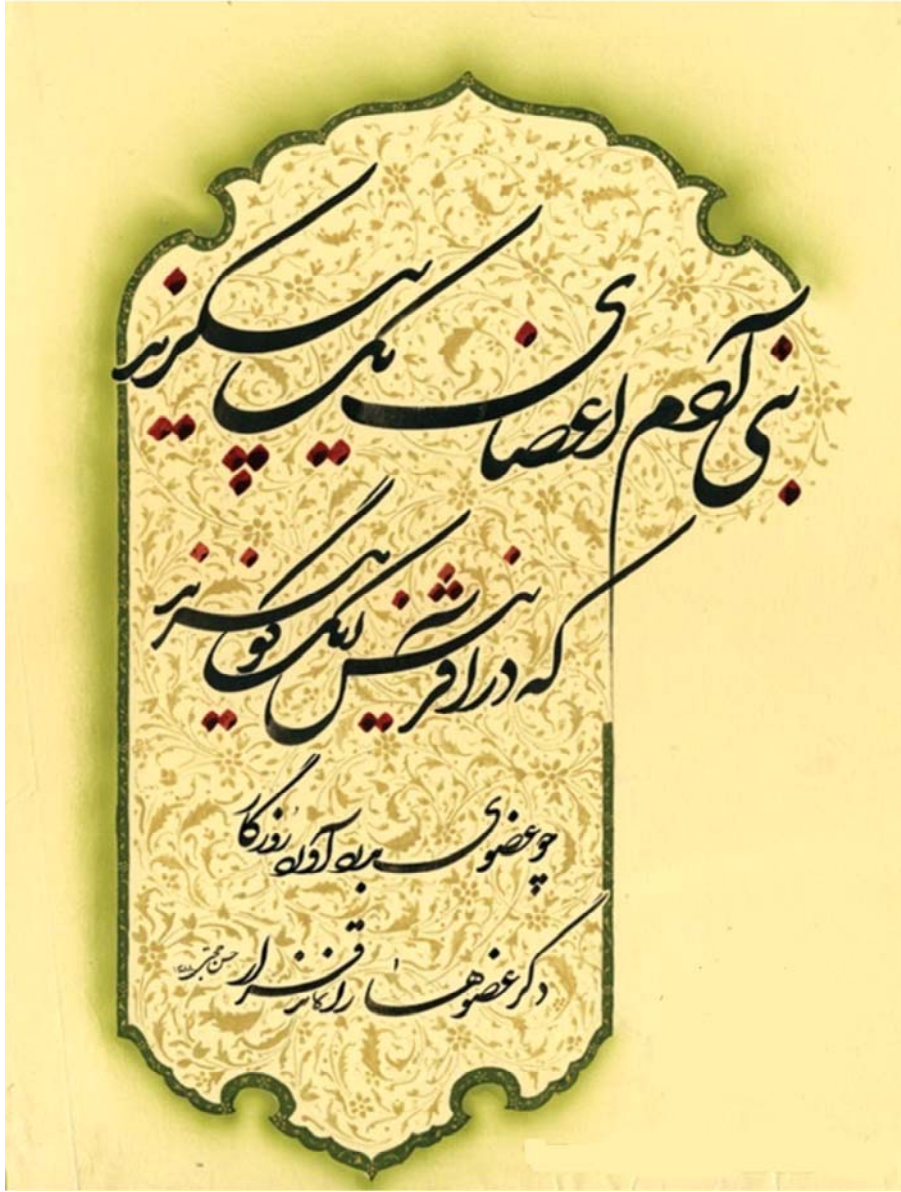 بنی آدم اعضای یک پیکرند
که در آفرینش ز یک گوهرند
چو عضوی بدرد آورد روزگار
دگر عضوها را نماند قرار